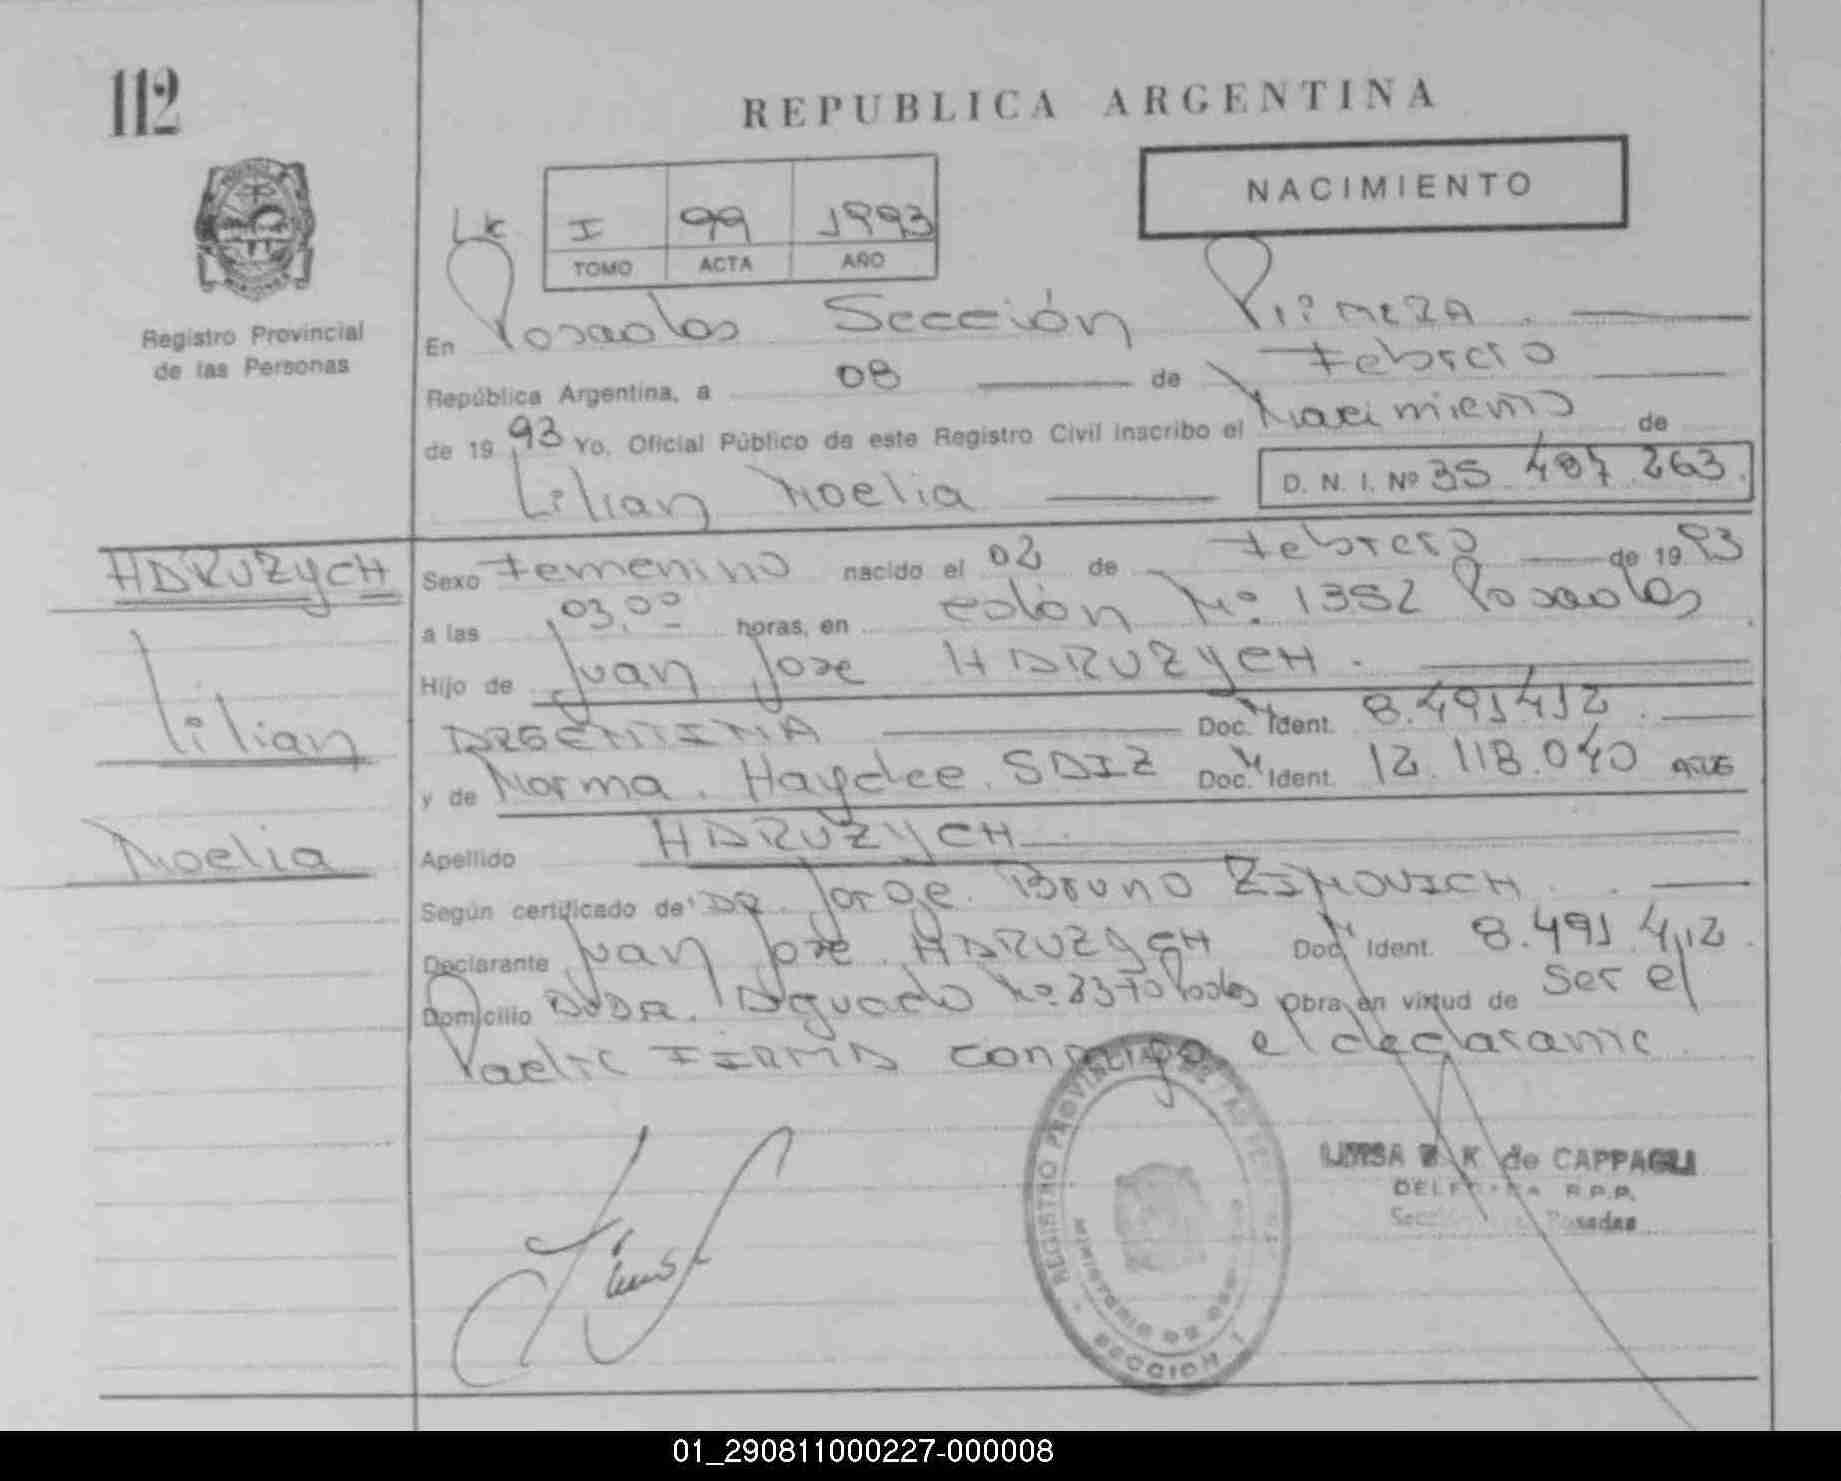 112
REPUBLICA ARGENTINA
NACIMIENTO
I 99 1993
TOMO ACTA AÑO
Registro Provincial
de las Personas
En Posadas Sección Primera.
República Argentina, a 08 de Febrero
de 1993 Yo, Oficial Público de este Registro Civil inscribo el Nacimiento de
Lilian Noelia D. N. I. Nº 35.487.263.
HARUZYCH
Lilian
Noelia
Sexo Femenino nacido el 02 de Febrero de 1993
a las 03,00 horas, en colón Nº 1352 Posadas
Hijo de Juan Jose HARUZYCH.
ARGENTINA Doc. Ident. 8.491.412.
y de Norma. Haydee. SAIZ Doc. Ident. 12.118.040
Apellido HARUZYCH
Según certificado de DR. Jorge. Bruno ZIMOVICH.
Declarante Juan Jose. HARUZYCH Doc. Ident. 8.491.412.
Domicilio AVDA. Aguado Nº 3370 Obra en virtud de Ser el
Padre FIRMA conmigo el declarante
REGISTRO PROVINCIAL DE LAS
MINISTERIO DE
SECCION 1
de CAPPAGLI
R.P.P.
Posadas
01_290811000227-000008